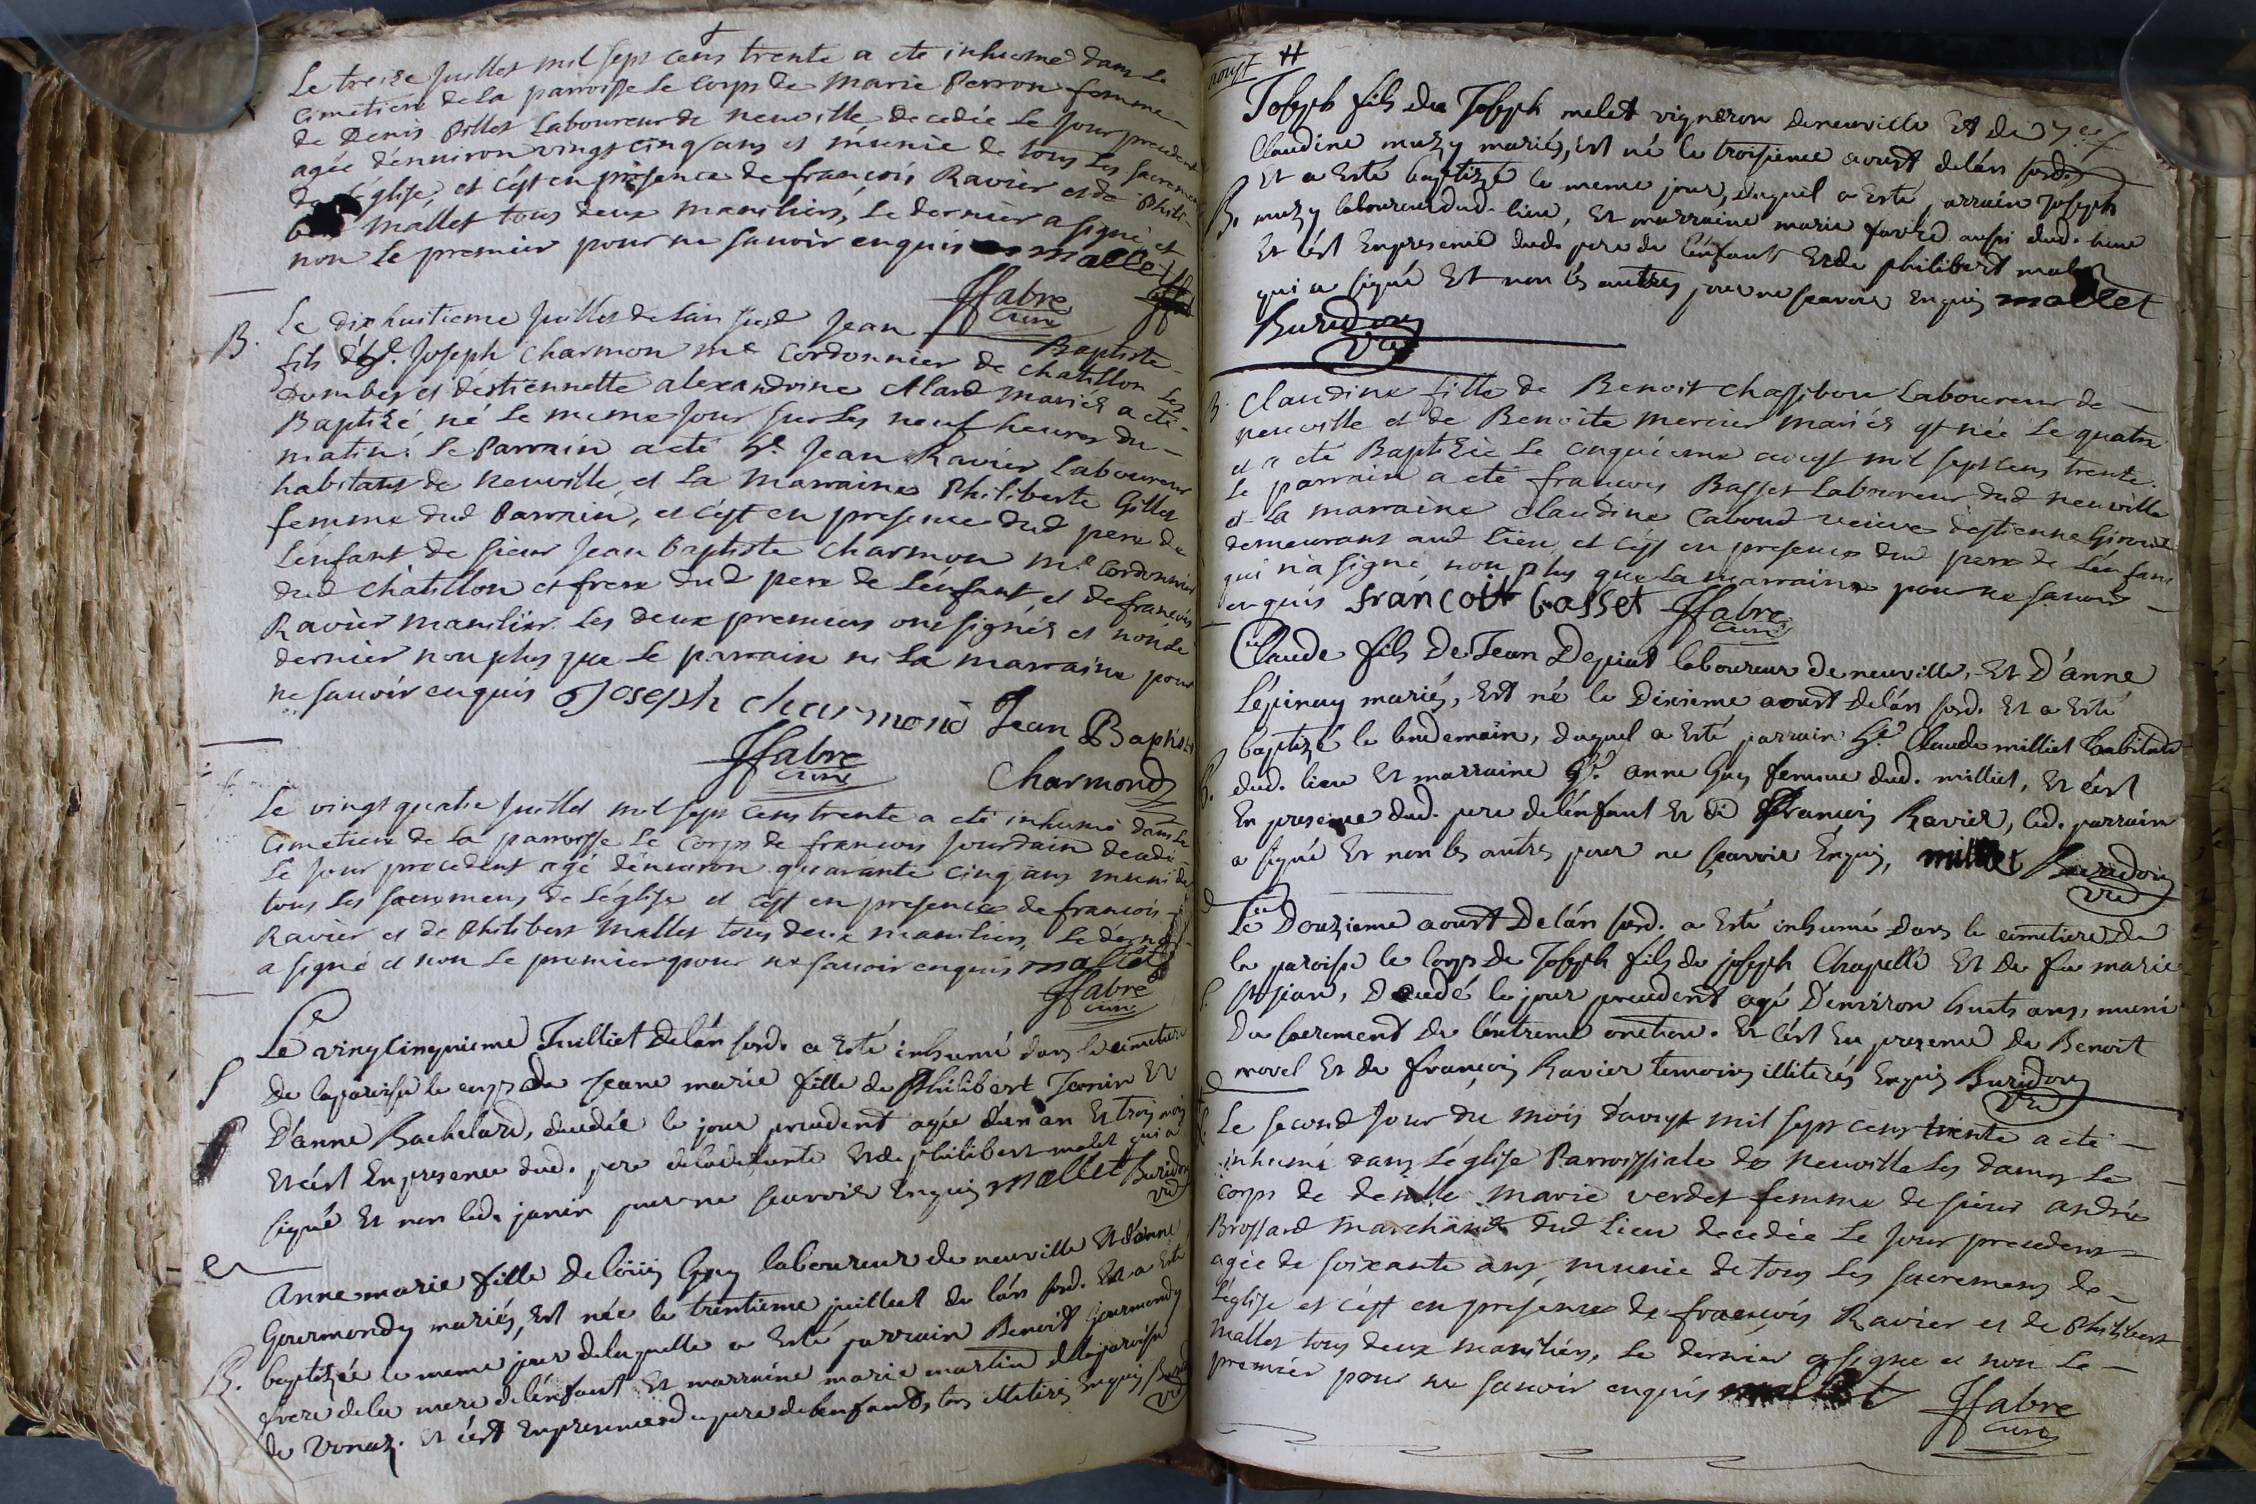 Le treize Juillet mil sept cens trente a eté inhumé dans Le
Cimetiere de La parroisse Le Corps de Marie Perron femme
de Denis Pillet Laboureur de neuville decedée Le Jour precedent
agée d'environ vingt cinq ans et munie de tous Les sacremens
de L'église, et c'est en presence de francois Ravier et de Phili-
Mallet tous deux Maniliers, Le dernier a signé et
non Le premier pour ne savoir enquis mallet
ffabre
Curé
B. Le dix huitieme Juillet de L'an susd Jean Baptiste
fils de Sr. Joseph Charmon me Cordonnier de Chatillon Les
Dombes et d'estiennette alexandrine Alard Mariés a eté
Baptizé, né Le meme Jour sur Les neuf heures du
matin, Le Parrain a eté Sr. Jean Ravier Laboureur
habitant de Neuville, et La Marraine Philiberte Gillet
femme dud Parrain, et c'est en presence dud pere de
L'enfant de sieur Jean Baptiste Charmon me Cordonnier
dud Chatillon et frere dud pere de L'enfant, et de francois
Ravier manilier. Les deux premiers ont signés et non Le
dernier non plus que Le parrain ni La marraine pour
ne savoir enquis Joseph charmond Jean Baptiste
ffabre
Curé
Charmond
Le vingt quatre Juillet mil sept cens trente a eté inhumé dans Le
Cimetiere de La parroisse Le Corps de francois Jourdain decedé
Le Jour precedent agé d'environ quarante cinq ans muni de
tous Les sacremens de L'église et c'est en presence de francois
Ravier et de Philibert Mallet tous deux maniliers, Le dernier
a signé et non Le premier pour ne savoir enquis mallet
ffabre
Curé
Le vingt cinquieme Juilliet de l'an susd. a esté inhumé dans le cimetiere
de la paroisse le corps de Jeane marie fille de Philibert Janin et
D'anne Bachelard, decedée le jour precedent agée d'un an et trois mois
et c'est en presence dud. pere de la defunte et de philibert malet qui a
signé et non led. janin pour ne scavoir enquis mallet Buridon
vic
Anne marie fille de loüis Guy laboureur de neuville et d'anne
Gourmondy mariés, est née le trentieme juillet de l'an susd. et a esté
B. baptizée le meme jour de laquelle a esté parrain Benoist Gourmondy
frere de la mere de l'enfant et marraine marie martin de la paroisse
de Vonaz. et c'est en presence du pere de l'enfant, tous illiterés enquis Buridon
vic
aoust #
Joseph fils de Joseph melet vigneron de neuville et de
Claudine muzy mariés, est né le troisieme aoust de l'an susd.
et a esté baptizé le meme jour, duquel a esté parrain Joseph
B. muzy laboureur dud. lieu, et marraine marie favre aussi dud. lieu
et c'est en presence dud. pere de l'enfant et de philibert malet
qui a signé et non les autres pour ne scavoir enquis mallet
Buridon
vic
B. Claudine fille de Benoit Chassibou Laboureur de
neuville et de Benoite Mercier Mariés est née Le quatre
et a eté Baptizée Le cinquieme aoust mil sept cens trente.
Le parrain a eté francois Basset Laboureur dud neuville
et La marraine Claudine Caboud veuve d'estienne Giroud
demeurant aud Lieu, et c'est en presence dud pere de L'enfant
qui n'a signé, non plus que La marraine pour ne savoir
enquis francois basset ffabre
Curé
Claude fils De Jean Depiat laboureur de neuville, et D'anne
Lépinay mariés, est né le Dixieme aoust de l'an susd. et a esté
baptizé le lendemain, duquel a esté parrain Sr. Claude milliet habitant
B. dud. lieu et marraine anne Guy femme dud. milliet, et c'est
en presence dud. pere de l'enfant et de François Ravier, led. parrain
a signé et non les autres pour ne scavoir enquis, milliet Buridon
vic
Le Douzieme aoust De l'an susd. a esté inhumé dans le cimetiere de
la paroisse le corps de Joseph fils de joseph Chapelle et de fu marie
, Decedé le jour precedent agé D'environ huit ans, muni
Du sacrement de l'extreme onction. et c'est en presence de Benoit
morel et de François Ravier temoins illiterés enquis Buridon
vic
Le second Jour du mois d'aoust mil sept cens trente a eté
inhumé dans L'église Parroissiale de Neuville Les dames Le
corps de demlle Marie verdet femme de sieur andré
Brossard Marchand dud Lieu decedée Le Jour precedent
agée de soixante ans, munie de tous Les sacremens de
L'église et c'est en presence de francois Ravier et de Philibert
Mallet tous deux maniliers, Le dernier a signé et non Le
premier pour ne savoir enquis mallet ffabre
Curé